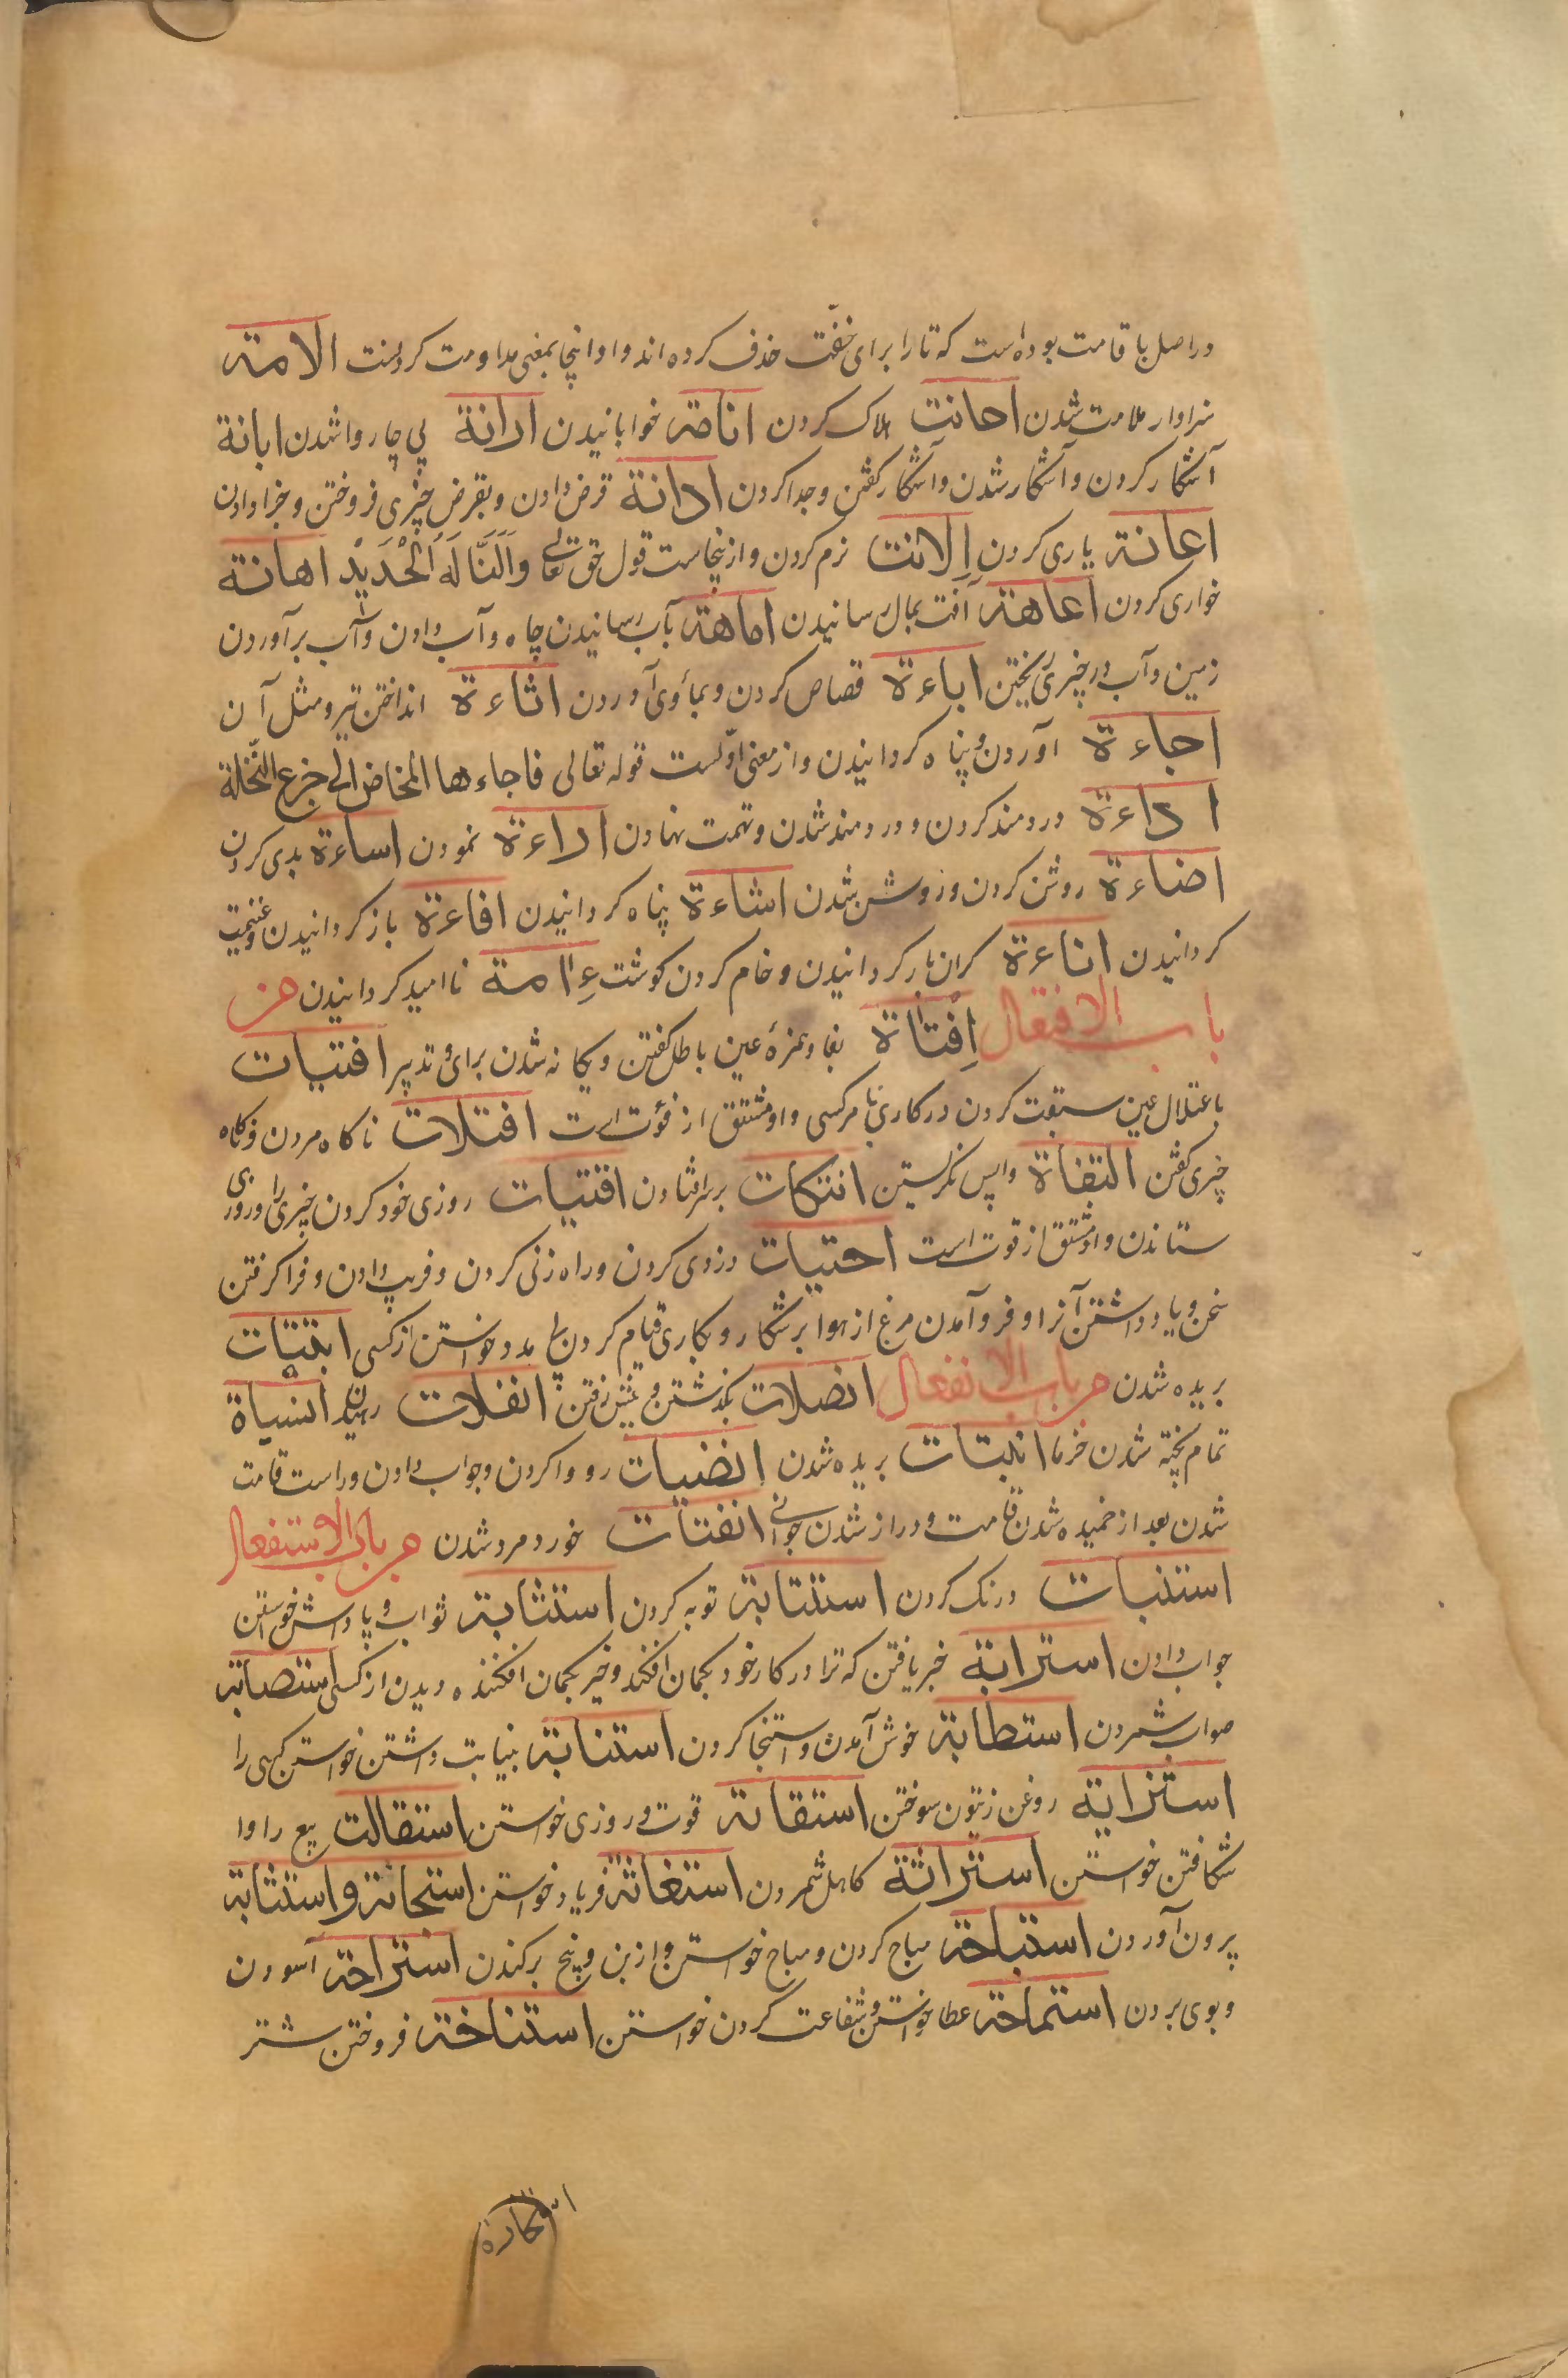 دراصل باقامت بوده است که تا را برای خفّت حذف کرده‌اند و او اینجا بمعنی مداومت کردنست الامتہ
سزاوار ملامت شدن احانت هلاک کردن انامتہ خوابانیدن ارانة بی چاروا شدن ابانة
آشکار کردن و آشکار شدن و آشکار گفتن و جدا کردن ادانة قرض دادن و بقرض چیزی فروختن و جزا دادن
اعانتہ یاری کردن اِلانت نرم کردن و ازینجاست قول حق تعالی وَاَلَنَّا لَهُ الْحَدِیْدَ اهانتہ
خواری کردن اعاهتہ آفت بمال رسانیدن اماهتہ بآب رسانیدن چاه و آب دادن و آب برآوردن
زمین و آب در چیزی ریختن اباءة قصاص کردن و بمأوی آوردن اثاءة انداختن تیر و مثل آن
اجاءة آوردن و پناه کردانیدن و از معنی اوّلست قوله تعالی فاجاءها المخاض الی جزع النّخلة
اداءة دردمند کردن و دردمند شدن و تهمت نهادن اراءة نمودن اساءة بدی کردن
اضاءة روشن کردن و روشن شدن اشاءة پناه کردانیدن افاءة باز کردانیدن و غنیمت
کردانیدن اناءة کران بار کردانیدن و خام کردن کوشت نا امید کردانیدن
باب الافتعال اِفتاة بفا و همزهٔ عین باطل گفتن و یکانه شدن برای و تدبیر افتیات
باعتلال عین سبقت کردن در کاری بامر کسی و او مشتق از فَوت است افتلات ناکاه مردن و ناکاه
چیزی گفتن التفاة واپس نگریستن انتکات بر سر افتادن اقتیات روزی خود کردن چیزی را و روزی
ستاندن و او مشتق از قوت است احتیات دزدی کردن و راه زنی کردن و فریب دادن و فرا گرفتن
سخن و یاد داشتن آنرا و فرو آمدن مرغ از هوا بر شکار و بکاری قیام کردن بی مدد خواستن از کسی ابتتات
بریده شدن باب الانفعال انصلات بگذشتن و پیش رفتن انفلات رهیدن انسیاة
تمام پخته شدن خرما انبتات بریده شدن انضیات رو وا کردن و جواب دادن و راست قامت
شدن بعد از خمیده شدن قامت و دراز شدن جوانی انفتات خورد و مرد شدن باب الاستفعال
استنبات درنک کردن استتابتہ توبه کردن استثابتہ ثواب و پاداش خواستن
جواب دادن استرابة خبر یافتن که ترا در کار خود بکمان افکند و خیر بکمان افکننده دیدن از کسی استصابتہ
صواب شمردن استطابتہ خوش آمدن و استنجا کردن استنابتہ بنیابت داشتن خواستن کسی را
استزایة روغن زیتون سوختن استقاتہ قوت و روزی خواستن استقالت بیع را وا
شکافتن خواستن استراثة کاهل شمردن استغاثتہ فریاد خواستن استحاثتہ و استثابتہ
بیرون آوردن استباحتہ مباح کردن و مباح خواستن و از بن و بیخ برکندن استراحتہ آسودن
و بوی بردن استماحتہ عطا خواستن و شفاعت کردن خواستن استناختہ فروختن شتر